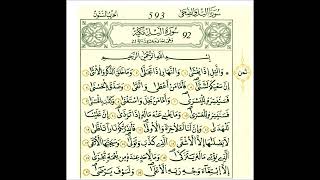 سورة الليل 593 الحزب الستون
سورة الليل مكية 92
بسم الله الرحمن الرحيم
واليل إذا يغشى والنهار إذا تجلى وما خلق الذكر والأنثى ثمن
إن سعيكم لشتى فأما من أعطى واتقى وصدق بالحسنى
فسنيسره لليسرى وأما من بخل واستغنى وكذب بالحسنى
فسنيسره للعسرى وما يغني عنه ماله إذا تردى إن علينا
للهدى وإن لنا للآخرة والأولى فأنذرتكم نارا تلظى
لا يصلاها إلا الأشقى الذي كذب وتولى وسيجنبها الأتقى
الذي يؤتي ماله يتزكى وما لأحد عنده من نعمة تجزى
إلا ابتغاء وجه ربه الأعلى ولسوف يرضى